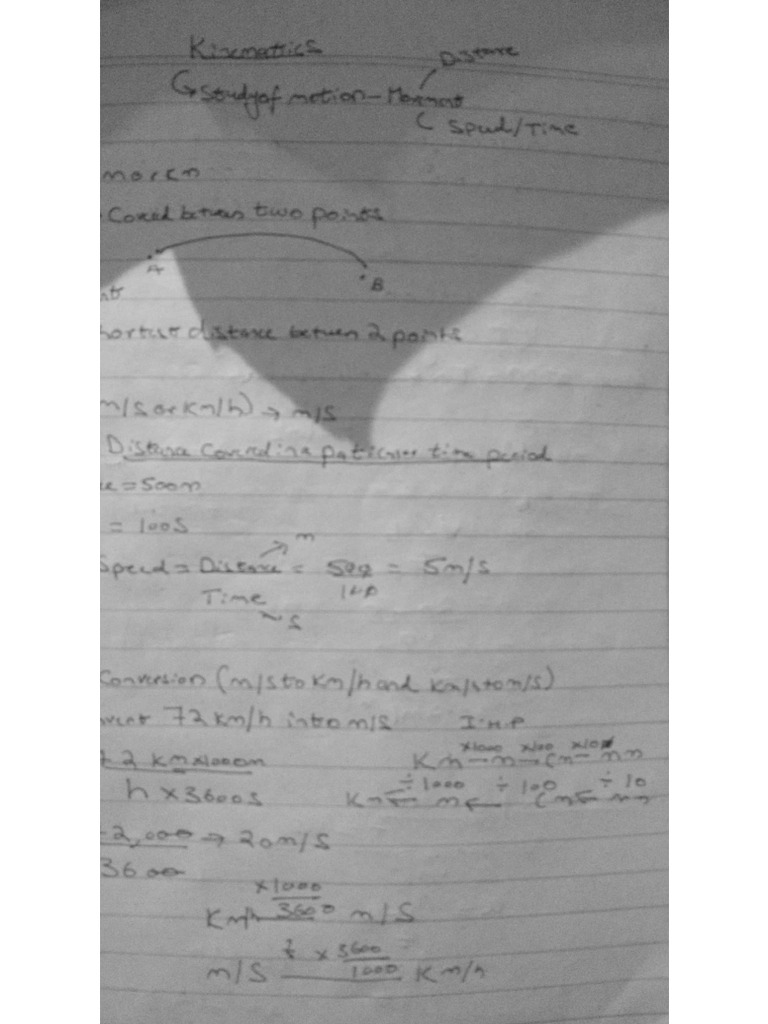 Kinemattics
Distance
↳ Study of motion - Moment
Speed/Time
m or km
Covered between two points
A
B
shortest distance between 2 points
m/s or km/h) → m/s
Distance Covered in a particular time period
= 500m
= 100s
Speed = Distance = 500 = 5m/s
m
Time 100
s
Conversion (m/s to km/h and km/h to m/s)
72 km/h into m/s I.M.P
2 km x 1000m
x1000 x100 x10
Km → m → cm → mm
h x 3600s
÷1000 ÷100 ÷10
Km ← m ← cm ← mm
2,000 → 20m/s
3600
x 1000
Km/h 3600 m/s
x 3600
m/s 1000 Km/h